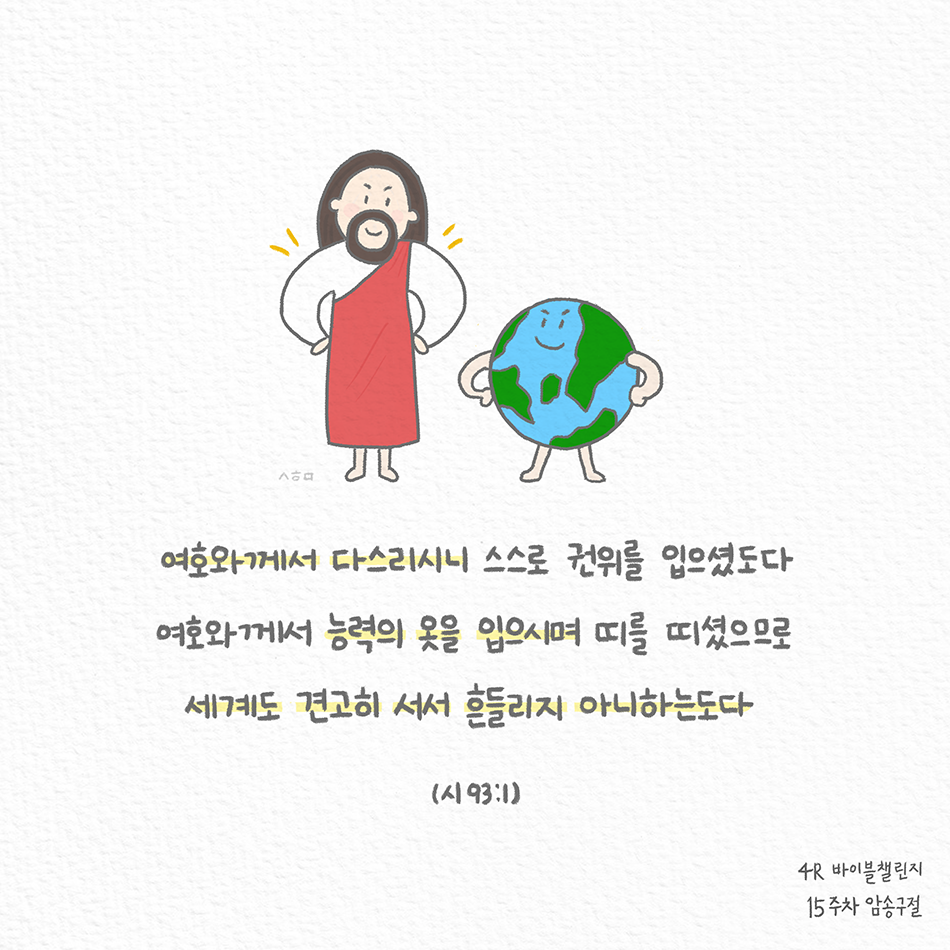 ㅅㅎㅁ
여호와께서 다스리시니 스스로 권위를 입으셨도다
여호와께서 능력의 옷을 입으시며 띠를 띠셨으므로
세계도 견고히 서서 흔들리지 아니하는도다
(시 93:1)
4R 바이블챌린지
15주차 암송구절